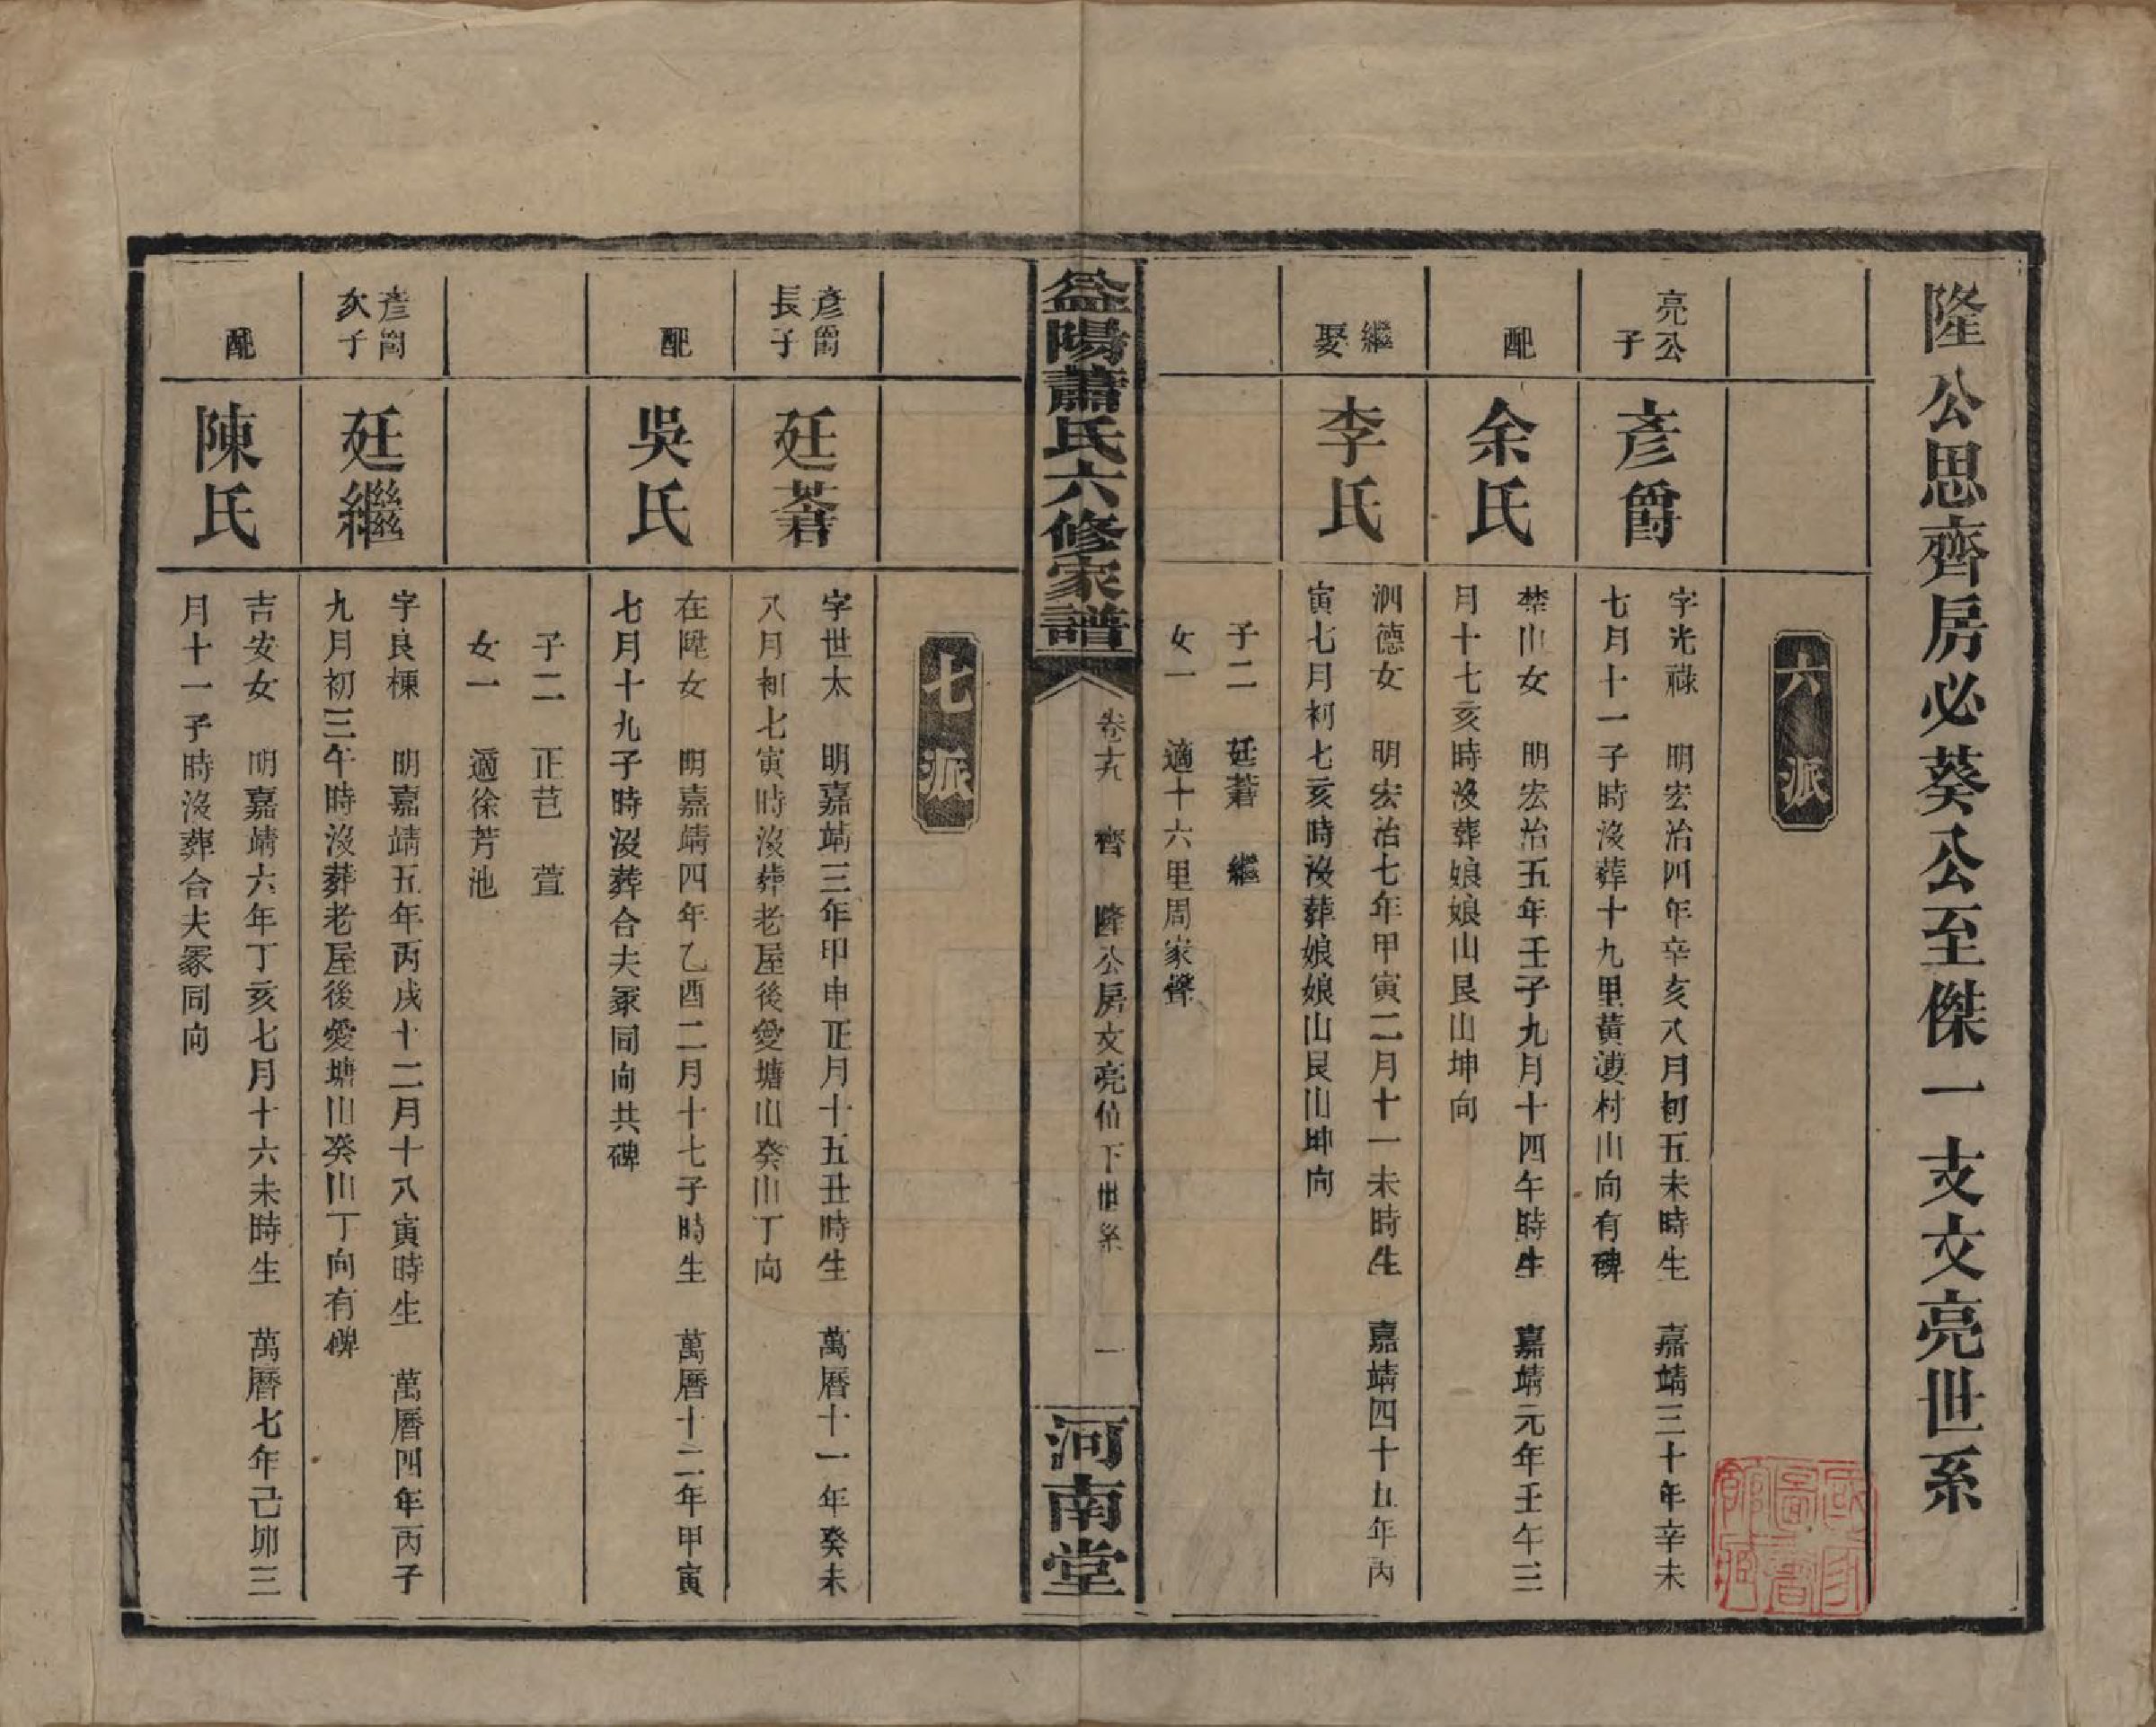 隆公思齊房必葵公至傑一支文亮世系
六派
亮公
子
彥爵
字光祿 明宏治四年辛亥八月初五未時生 嘉靖三十年辛未
七月十一子時沒葬十九里黃溇村山向有碑
配
余氏
楚山女 明宏治五年壬子九月十四午時生 嘉靖元年壬午三
月十七亥時沒葬娘娘山艮山坤向
繼
娶
李氏
泗德女 明宏治七年甲寅二月十一未時生 嘉靖四十五年丙
寅七月初七亥時沒葬娘娘山艮山坤向
子二 廷蒼 繼
女一 適十六里周家聲
益陽蕭氏六修家譜
卷十九 齊 隆公房文亮位下世系 一
河南堂
七派
彥爵
長子
廷蒼
字世太 明嘉靖三年甲申正月十五丑時生 萬曆十一年癸未
八月初七寅時沒葬老屋後愛塘山癸山丁向
配
吳氏
在陞女 明嘉靖四年乙酉二月十七子時生 萬曆十二年甲寅
七月十九子時沒葬合夫冢同向共碑
子二 正芑 萱
女一 適徐芳池
彥爵
次子
廷繼
字良棟 明嘉靖五年丙戌十二月十八寅時生 萬曆四年丙子
九月初三午時沒葬老屋後愛塘山癸山丁向有碑
配
陳氏
吉安女 明嘉靖六年丁亥七月十六未時生 萬曆七年己卯三
月十一子時沒葬合夫冢同向